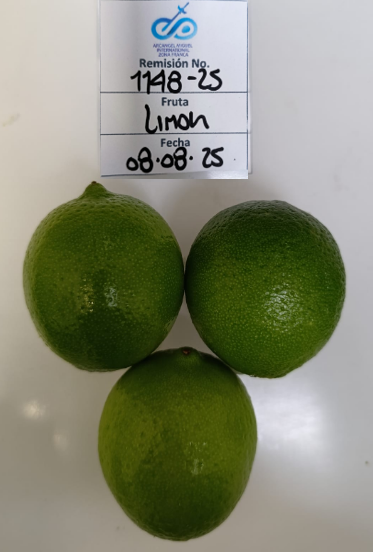 ARCANGEL MIGUEL
INTERNATIONAL
ZONA FRANCA
Remisión No.
1148-25
Fruta
Limon
Fecha
08.08.25